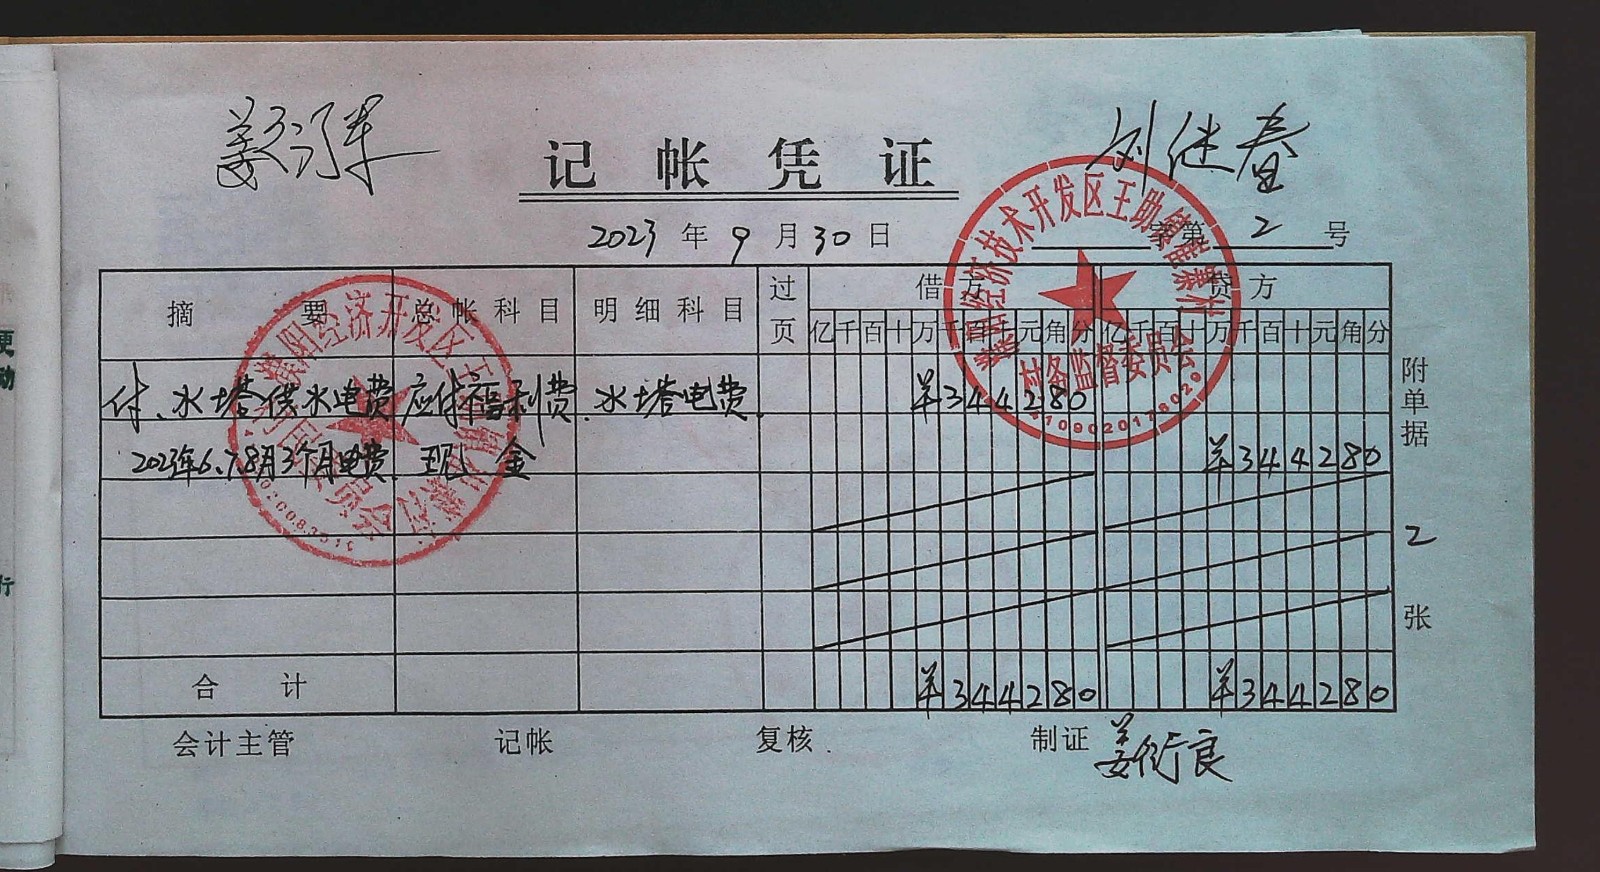 记帐凭证
2023年9月30日
第2号
摘要 总帐科目 明细科目 过页 借方 贷方
亿千百十万千百十元角分 亿千百十万千百十元角分
付、水塔供水电费 应付福利费 水塔电费 ¥344280
2023年6.7.8月3个月电费 现金 ¥344280
合计 ¥344280 ¥344280
附单据2张
会计主管 记帐 复核 制证 姜衍良
刘继春
濮阳经济技术开发区王助镇
村务监督委员会
濮阳经济开发区王助镇
村民委员会
更
动
行